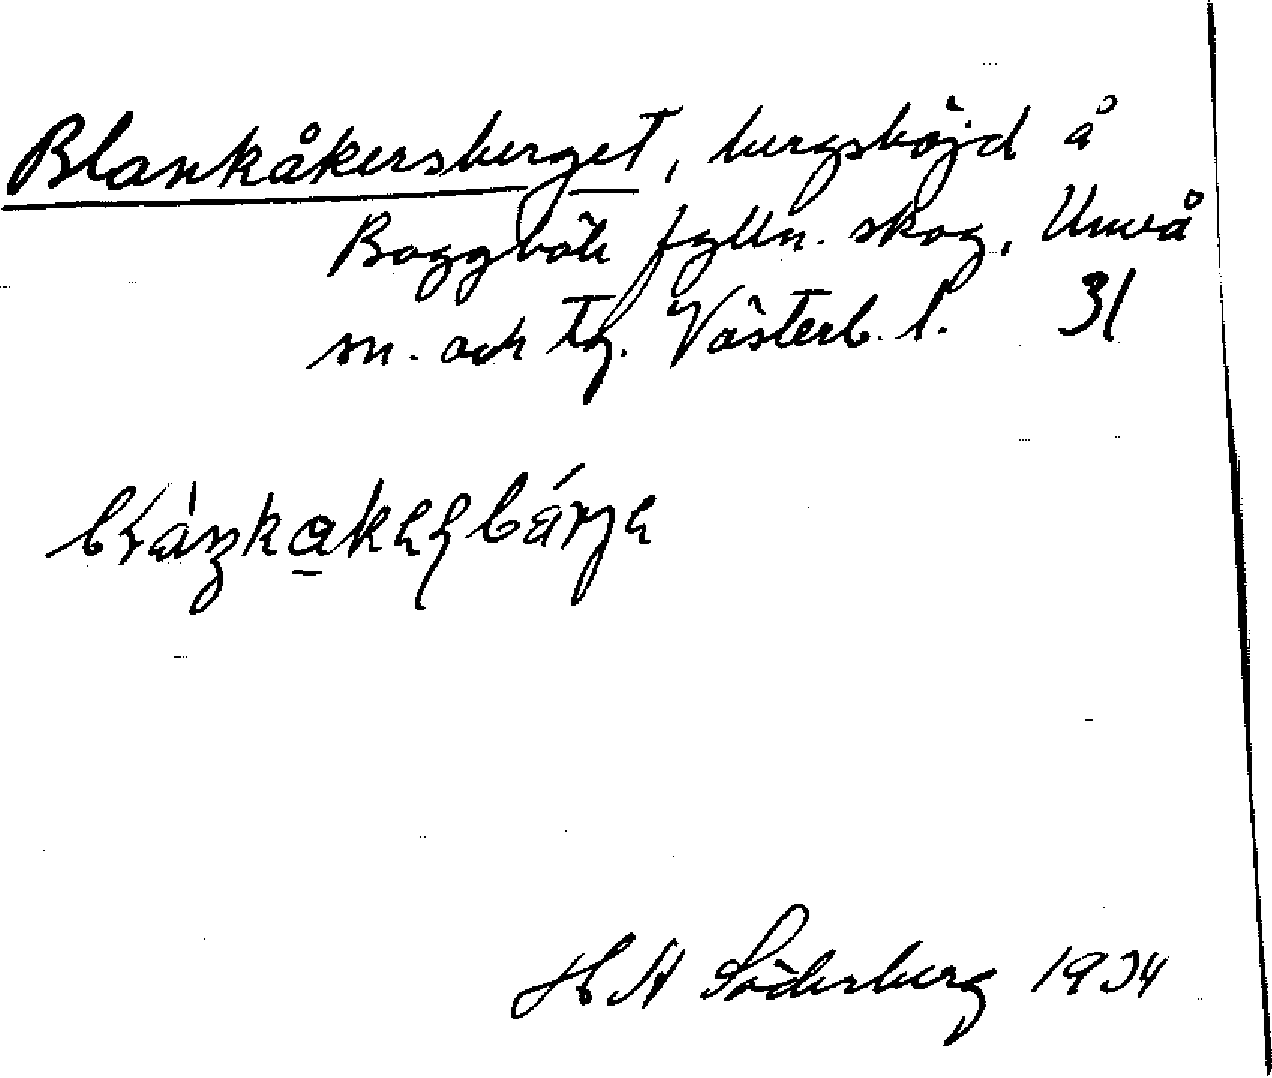 Blankåkersberget, bergshöjd å
Baggböle fylln. skog, Umeå
sn. och tg. Västerb. l. 31
H A Söderberg 1934